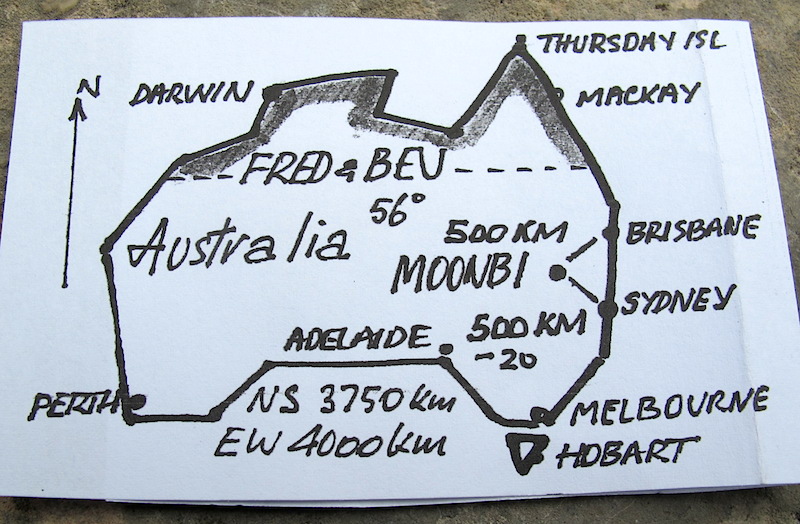 THURSDAY ISL
N
DARWIN
MACKAY
FRED & BEV
56°
500 KM
BRISBANE
Australia
MOONBI
SYDNEY
ADELAIDE
500 KM
-20
PERTH
NS 3750 km
MELBOURNE
EW 4000 km
HOBART